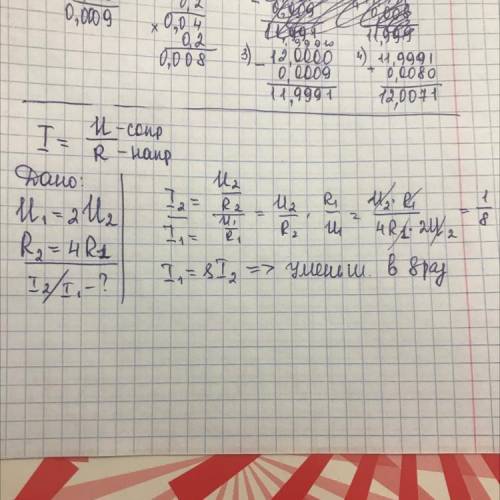 0,0009
0,2
× 0,04
0,2
0,008
3) 12,0000
- 0,0009
11,9991
4) 11,9991
+ 0,0080
12,0071
I = U - сопр
R - напр
Дано:
U₁ = 2U₂
R₂ = 4R1
I₂/I₁ - ?
I₂/I₁ = (U₂/R₂)/(U₁/R₁) = U₂/R₂ · R₁/U₁ = U₂·R₁/4R1·2U₂ = 1/8
I₁ = 8I₂ => уменьш. в 8 раз